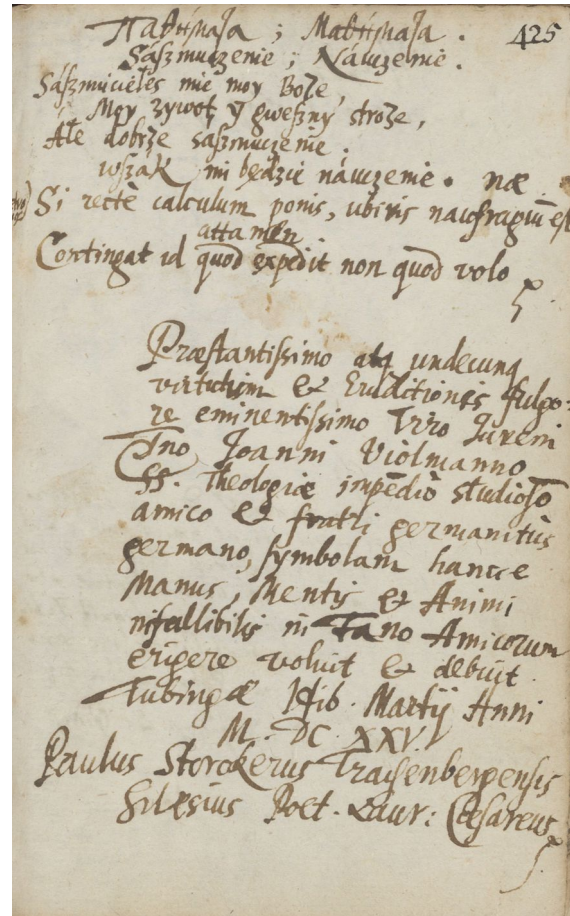 425
Παθήμαζα ; Μαθήμαζα .
Sászmuczenie ; Náuczenie .
Sászmućiełes mie moy Boże,
Moy zywot y gweszny stroże,
Ale dobrże saszmuczenie .
wszák mi będzie náuczenie . næ
Si rectè calculum ponis, ubivis naufragiū est
attamen
Contingat id quod expedit non quod volo
Præstantissimo atq undecunq
virtutum & Eruditionis fulgo-
re eminentissimo Viro Juveni
Dno Joanni Violmanno
SS. Theologiæ impēdiò studioso
amico & fratri germanitùs
germano, symbolam hancce
Manus, Mentis & Animi
infallibilis in Fano Amicorum
erigere voluit & debuit .
Tubingæ Hib. Martij Anni
M. DC. XXV.
Paulus Storckerus Trachenbergensis
Silesius Poet. Laur: Cæsareus